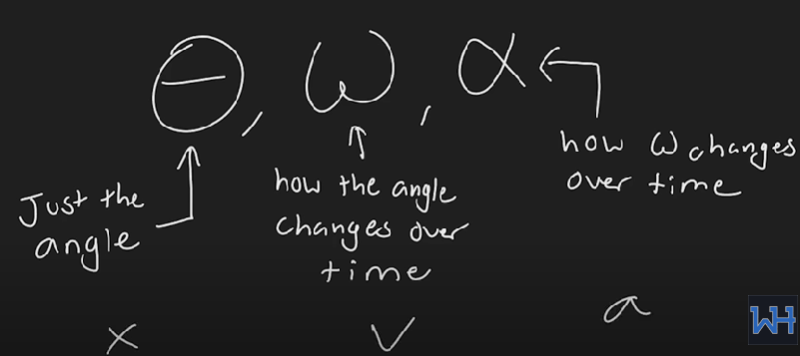 θ, ω, α
Just the
angle
how the angle
changes over
time
how ω changes
over time
x
v
a
WH